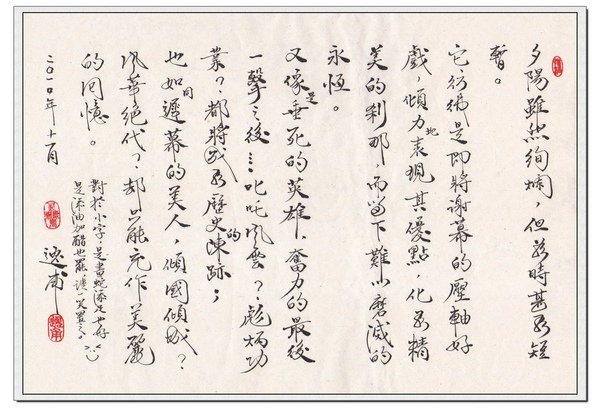 夕陽雖然絢爛，但為時甚為短
暫。
它彷彿是即將謝幕的壓軸好
戲，傾力地表現其優點，化為精
美的剎那，而留下難以磨滅的
永恆。
又像是垂死的英雄，奮力的最後
一擊之後…叱吒風雲？彪炳功
業？都將成為歷史的陳跡；
也如同遲幕的美人，傾國傾城？
風華絕代？却只能充作美麗
的回憶。
對於小字，是畫蛇添足也好
是添油加醋也罷，請一笑置之。
二○一○年十一月